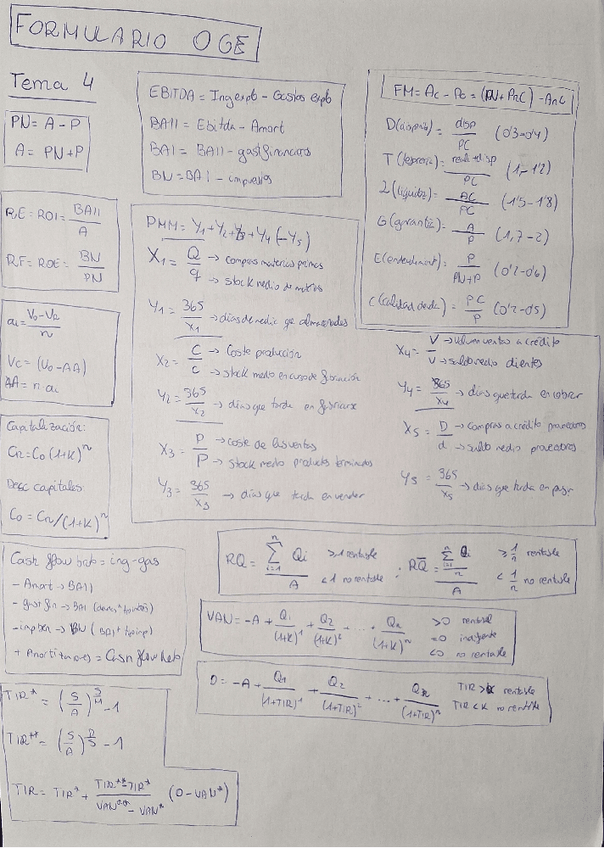 FORMULARIO OGE
Tema 4
PN = A - P
A = PN + P
EBITDA = Ing explo - Gastos explo
BAII = Ebitda - Amort
BAI = BAII - gast financieros
BN = BAI - impuestos
FM = AC - PC = (PN + PNC) - ANC
D(disponib) = disp / PC (0'3-0'4)
T(tesorería) = realiz+disp / PC (1-1'2)
L(liquidez) = AC / PC (1'5-1'8)
G(garantía) = A / P (1,7-2)
E(endeudamient) = P / PN+P (0'2-0'6)
C(calidad deuda) = PC / P (0'2-0'5)
RE = ROI = BAII / A
RF = ROE = BN / PN
PMM = Y1 + Y2 + Y3 + Y4 (-Y5)
X1 = Q / q → compras materias primas
→ stock medio de materias
Y1 = 365 / X1 → días de media que almacenadas
X2 = C / c → Coste producción
→ stock medio en curso de fabricación
Y2 = 365 / X2 → días que tarda en fabricarse
X3 = P / p → coste de las ventas
→ stock medio productos terminados
Y3 = 365 / X3 → días que tarda en vender
X4 = V / v → volumen ventas a crédito
→ saldo medio clientes
Y4 = 365 / X4 → días que tarda en cobrar
X5 = D / d → compras a crédito proveedores
→ saldo medio proveedores
Y5 = 365 / X5 → días que tarda en pagar
a = V0 - VR / n
VC = (V0 - AA)
AA = n a
Capitalización:
Cn = C0 (1+K)^n
Desc capitales:
C0 = Cn / (1+K)^n
Cash flow bruto = ing - gas
- Amort → BAII
- gast fin → BAI
- imp ben → BN
+ Amort = Cash flow neto
RQ = Σ(i=1, n) Qi / A >1 rentable
<1 no rentable
; RQ̄ = (Σ(i=1, n) Qi / n) / A ≥ 1/n rentable
< 1/n no rentable
VAN = -A + Q1 / (1+K)^1 + Q2 / (1+K)^2 + ... + Qn / (1+K)^n >0 rentable
=0 indiferente
<0 no rentable
0 = -A + Q1 / (1+TIR)^1 + Q2 / (1+TIR)^2 + ... + Qn / (1+TIR)^n TIR > K rentable
TIR < K no rentable
TIR* = (S/A)^(S/M) - 1
TIR** = (S/A)^(D/S) - 1
TIR = TIR* + TIR** - TIR* / VAN** - VAN* (0 - VAN*)